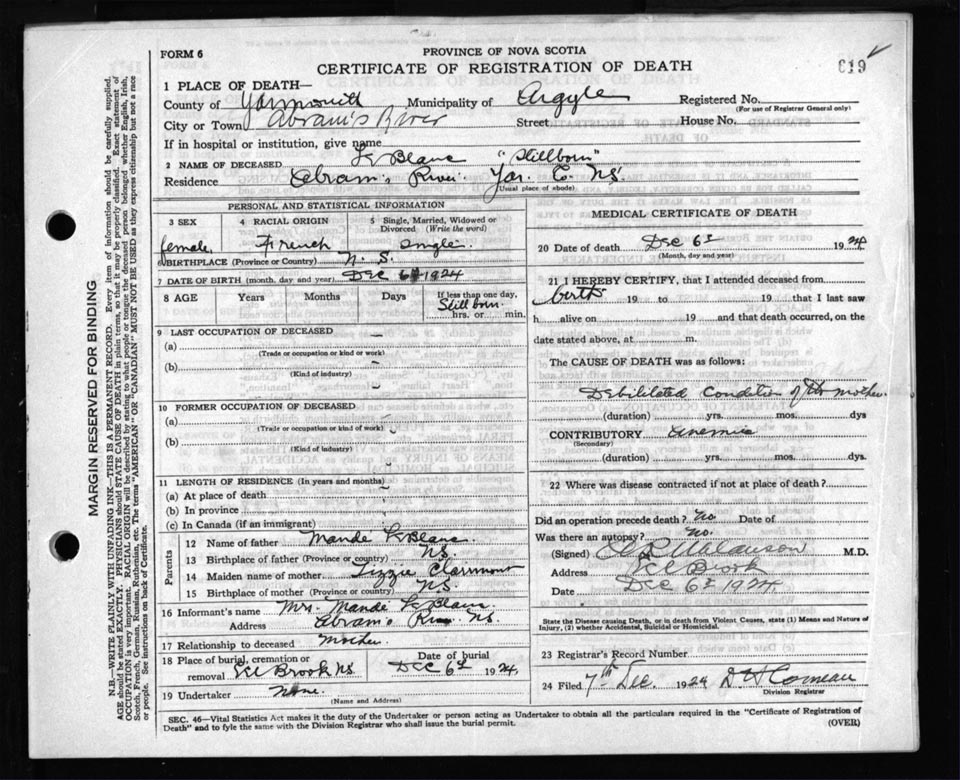 FORM 6
PROVINCE OF NOVA SCOTIA
CERTIFICATE OF REGISTRATION OF DEATH
619
1 PLACE OF DEATH—
County of Yarmouth Municipality of Argyle Registered No.
(For use of Registrar General only)
City or Town Abram's River Street House No.
If in hospital or institution, give name
2 NAME OF DECEASED LeBlanc "Stillborn"
Residence Abram's River Yar. Co. N.S.
(Usual place of abode)
PERSONAL AND STATISTICAL INFORMATION
3 SEX 4 RACIAL ORIGIN 5 Single, Married, Widowed or Divorced (Write the word)
female French single
6 BIRTHPLACE (Province or Country) N. S.
7 DATE OF BIRTH (month, day and year) Dec 6 1924
8 AGE Years Months Days If less than one day,
Still born
hrs. or min.
9 LAST OCCUPATION OF DECEASED
(a)
(Trade or occupation or kind or work)
(b)
(Kind of industry)
10 FORMER OCCUPATION OF DECEASED
(a)
(Trade or occupation or kind of work)
(b)
(Kind of industry)
11 LENGTH OF RESIDENCE (In years and months)
(a) At place of death
(b) In province
(c) In Canada (if an immigrant)
Parents
12 Name of father Mande LeBlanc
13 Birthplace of father (Province or country) N.S.
14 Maiden name of mother Lizzie Clairmont
15 Birthplace of mother (Province or country) N.S.
16 Informant's name Mrs. Mande LeBlanc
Address Abram's River N.S.
17 Relationship to deceased Mother
18 Place of burial, cremation or removal Eel Brook NS Date of burial Dec 6th 1924
19 Undertaker None.
(Name and Address)
MEDICAL CERTIFICATE OF DEATH
20 Date of death Dec 6th 1924
(Month, day and year)
21 I HEREBY CERTIFY, that I attended deceased from
birth 19 to 19 that I last saw
h alive on 19 and that death occurred, on the
date stated above, at m.
The CAUSE OF DEATH was as follows:
Debilitated Condition of the mother
(duration) yrs. mos. dys
CONTRIBUTORY anemia
(Secondary)
(duration) yrs. mos. dys.
22 Where was disease contracted if not at place of death?
Did an operation precede death? No Date of
Was there an autopsy? No.
(Signed) M.D.
Address Eel Brook
Date Dec 6th 1924
State the Disease causing Death, or in death from Violent Causes, state (1) Means and Nature of Injury, (2) whether Accidental, Suicidal or Homicidal.
23 Registrar's Record Number
24 Filed 7th Dec. 1924 Comeau
Division Registrar
SEC. 46—Vital Statistics Act makes it the duty of the Undertaker or person acting as Undertaker to obtain all the particulars required in the "Certificate of Registration of
Death" and to fyle the same with the Division Registrar who shall issue the burial permit.
(OVER)
MARGIN RESERVED FOR BINDING
N.B.—WRITE PLAINLY WITH UNFADING INK—THIS IS A PERMANENT RECORD. Every item of information should be carefully supplied.
AGE should be stated EXACTLY. PHYSICIANS should STATE CAUSE OF DEATH in plain terms, so that it may be properly classified. Exact statement of
OCCUPATION is very important. RACIAL ORIGIN will be described by stating to what people or tongue the deceased person belonged whether English, Irish,
Scotch, French, German, Russian, Ruthenian, etc. The terms "AMERICAN" OR "CANADIAN" MUST NOT BE USED as they express citizenship but not a race
or people. See instructions on back of Certificate.